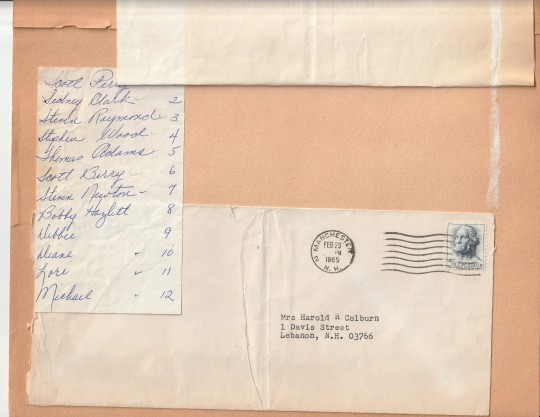 Scott
Sidney Clark - 2
Steven Raymond - 3
Stephen Wood - 4
Thomas Adams - 5
Scott Berry - 6
Glenn Newton - 7
Bobby Hazlett 8
Debbie 9
Diane - 10
Lori - 11
Michael - 12
MANCHESTER
FEB 23
PM
1965
N.H.
Mrs Harold R Colburn
1 Davis Street
Lebanon, N.H. 03766